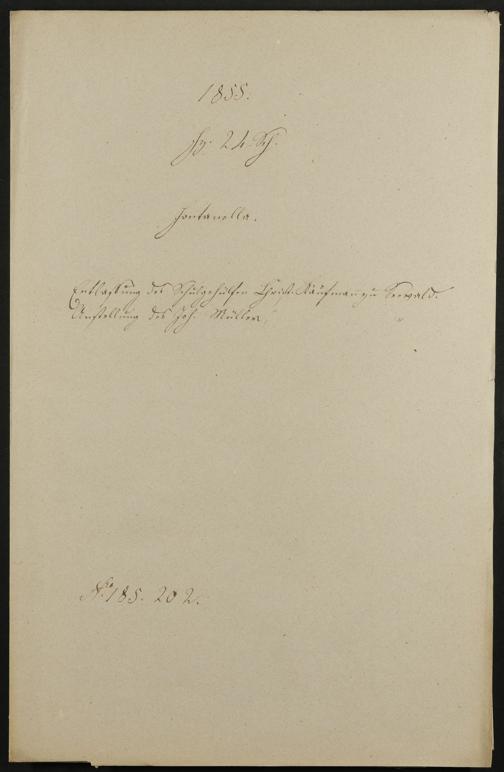 1855.
Fz. 24. Sch.
Fontanella.
Entlassung des Schulgehülfen Christ. Kaufmann zu Seewald.
Anstellung des Joh. Müller. "
No. 185. 202.